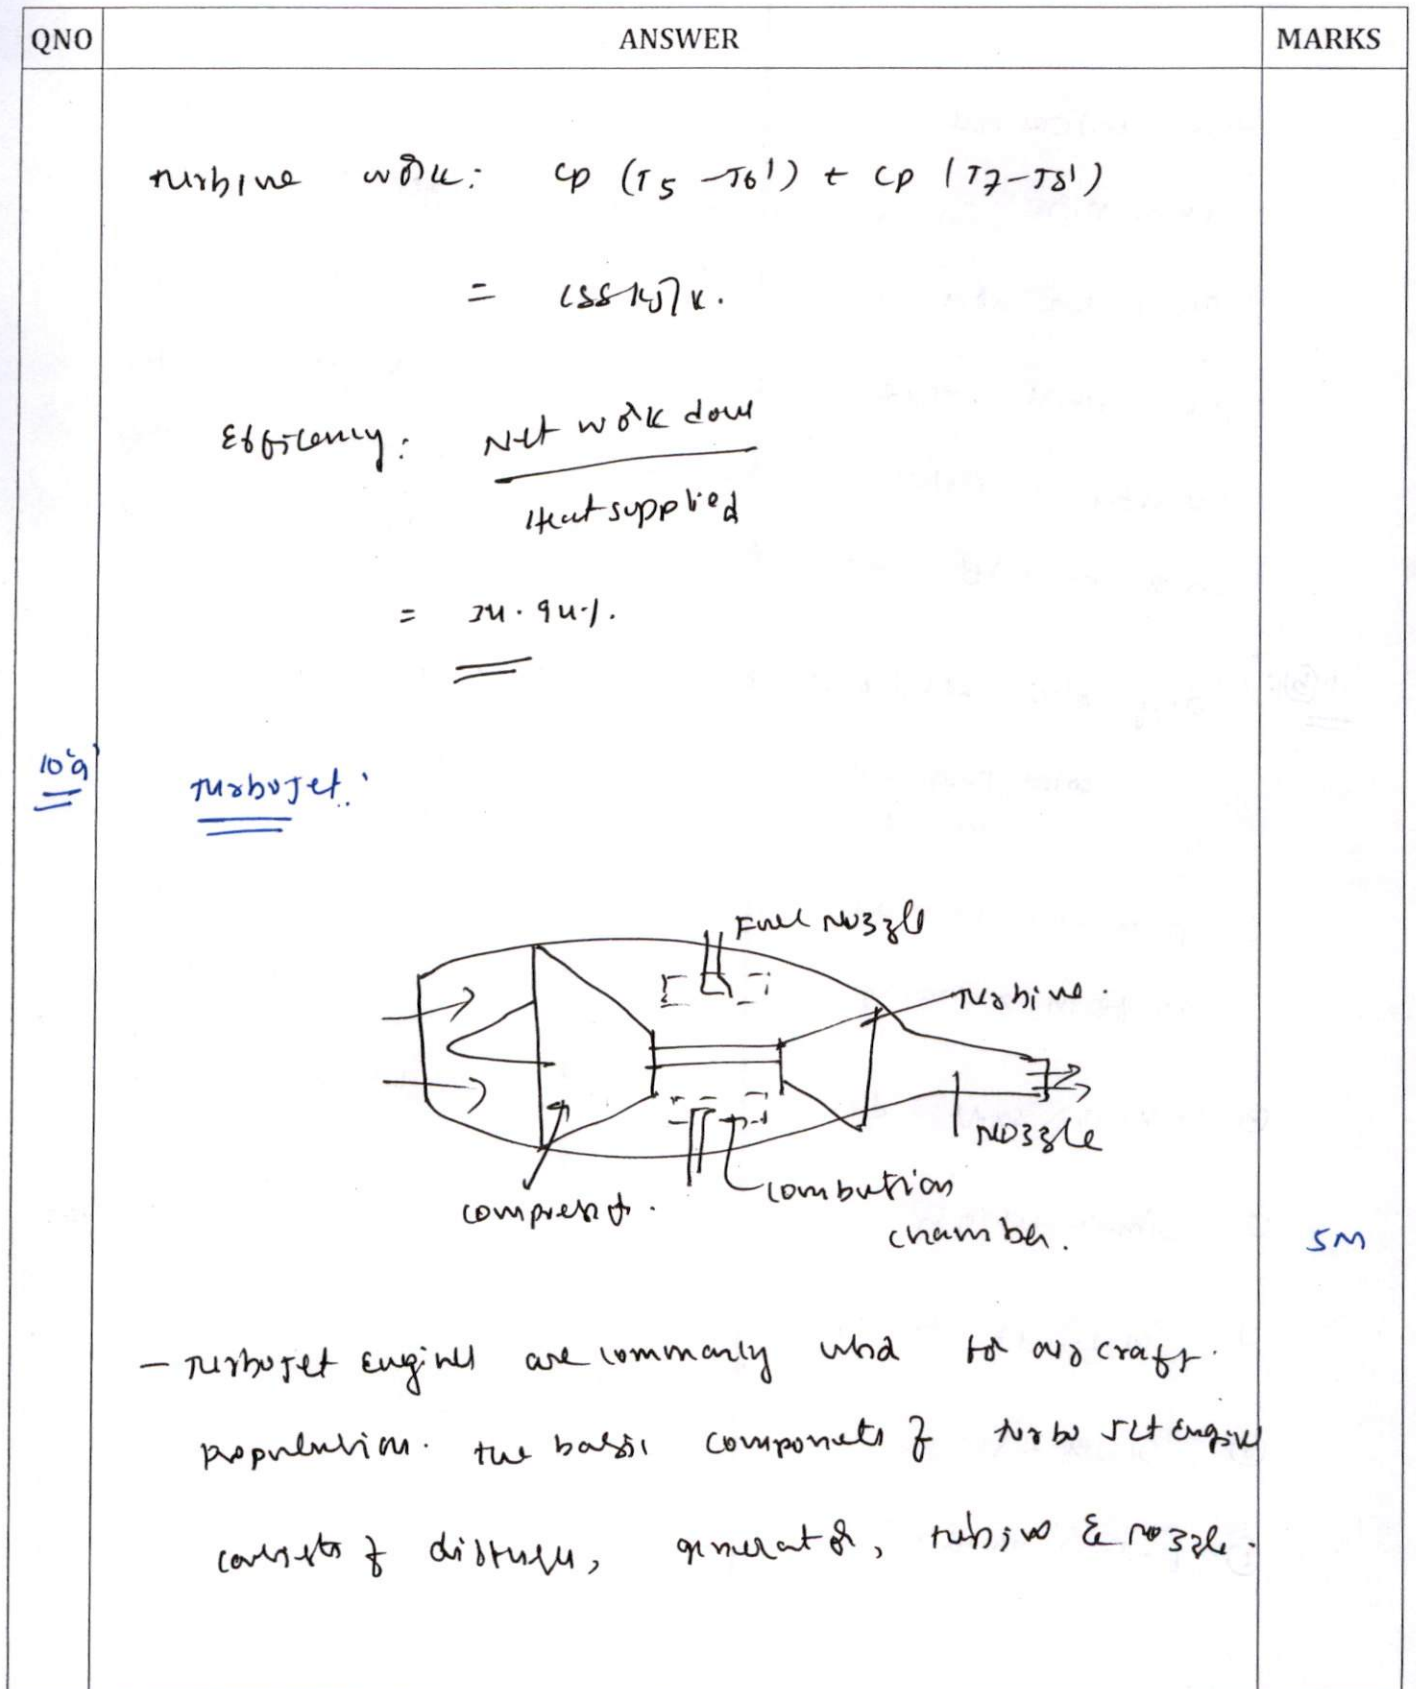 QNO ANSWER MARKS
turbine work: Cp (T5 - T6') + Cp (T7 - T8')
=
Efficency: Net work done
Heat supplied
= 34.94%.
10 a
Turbojet:
Fuel Nozzle
Turbine.
Nozzle
compressor.
combution
chamber.
5M
- Turbojet Engines are commonly used for air craft.
propulsion. The basic componets of turbo jet Engines
consists of diffuser, generator, turbine & nozzle.